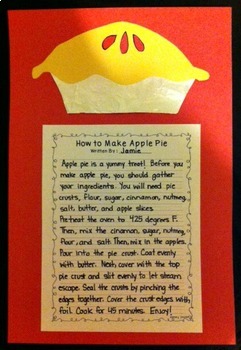 How to Make Apple Pie
Written By: Jamie
Apple pie is a yummy treat! Before you
make apple pie, you should gather
your ingredients. You will need pie
crusts, flour, sugar, cinnamon, nutmeg,
salt, butter, and apple slices.
Pre-heat the oven to 425 degrees F.
Then, mix the cinnamon, sugar, nutmeg,
flour, and salt. Then, mix in the apples.
Pour into the pie crust. Coat evenly
with butter. Next, cover with the top
pie crust and slit evenly to let steam
escape. Seal the crusts by pinching the
edges together. Cover the crust edges with
foil. Cook for 45 minutes. Enjoy!